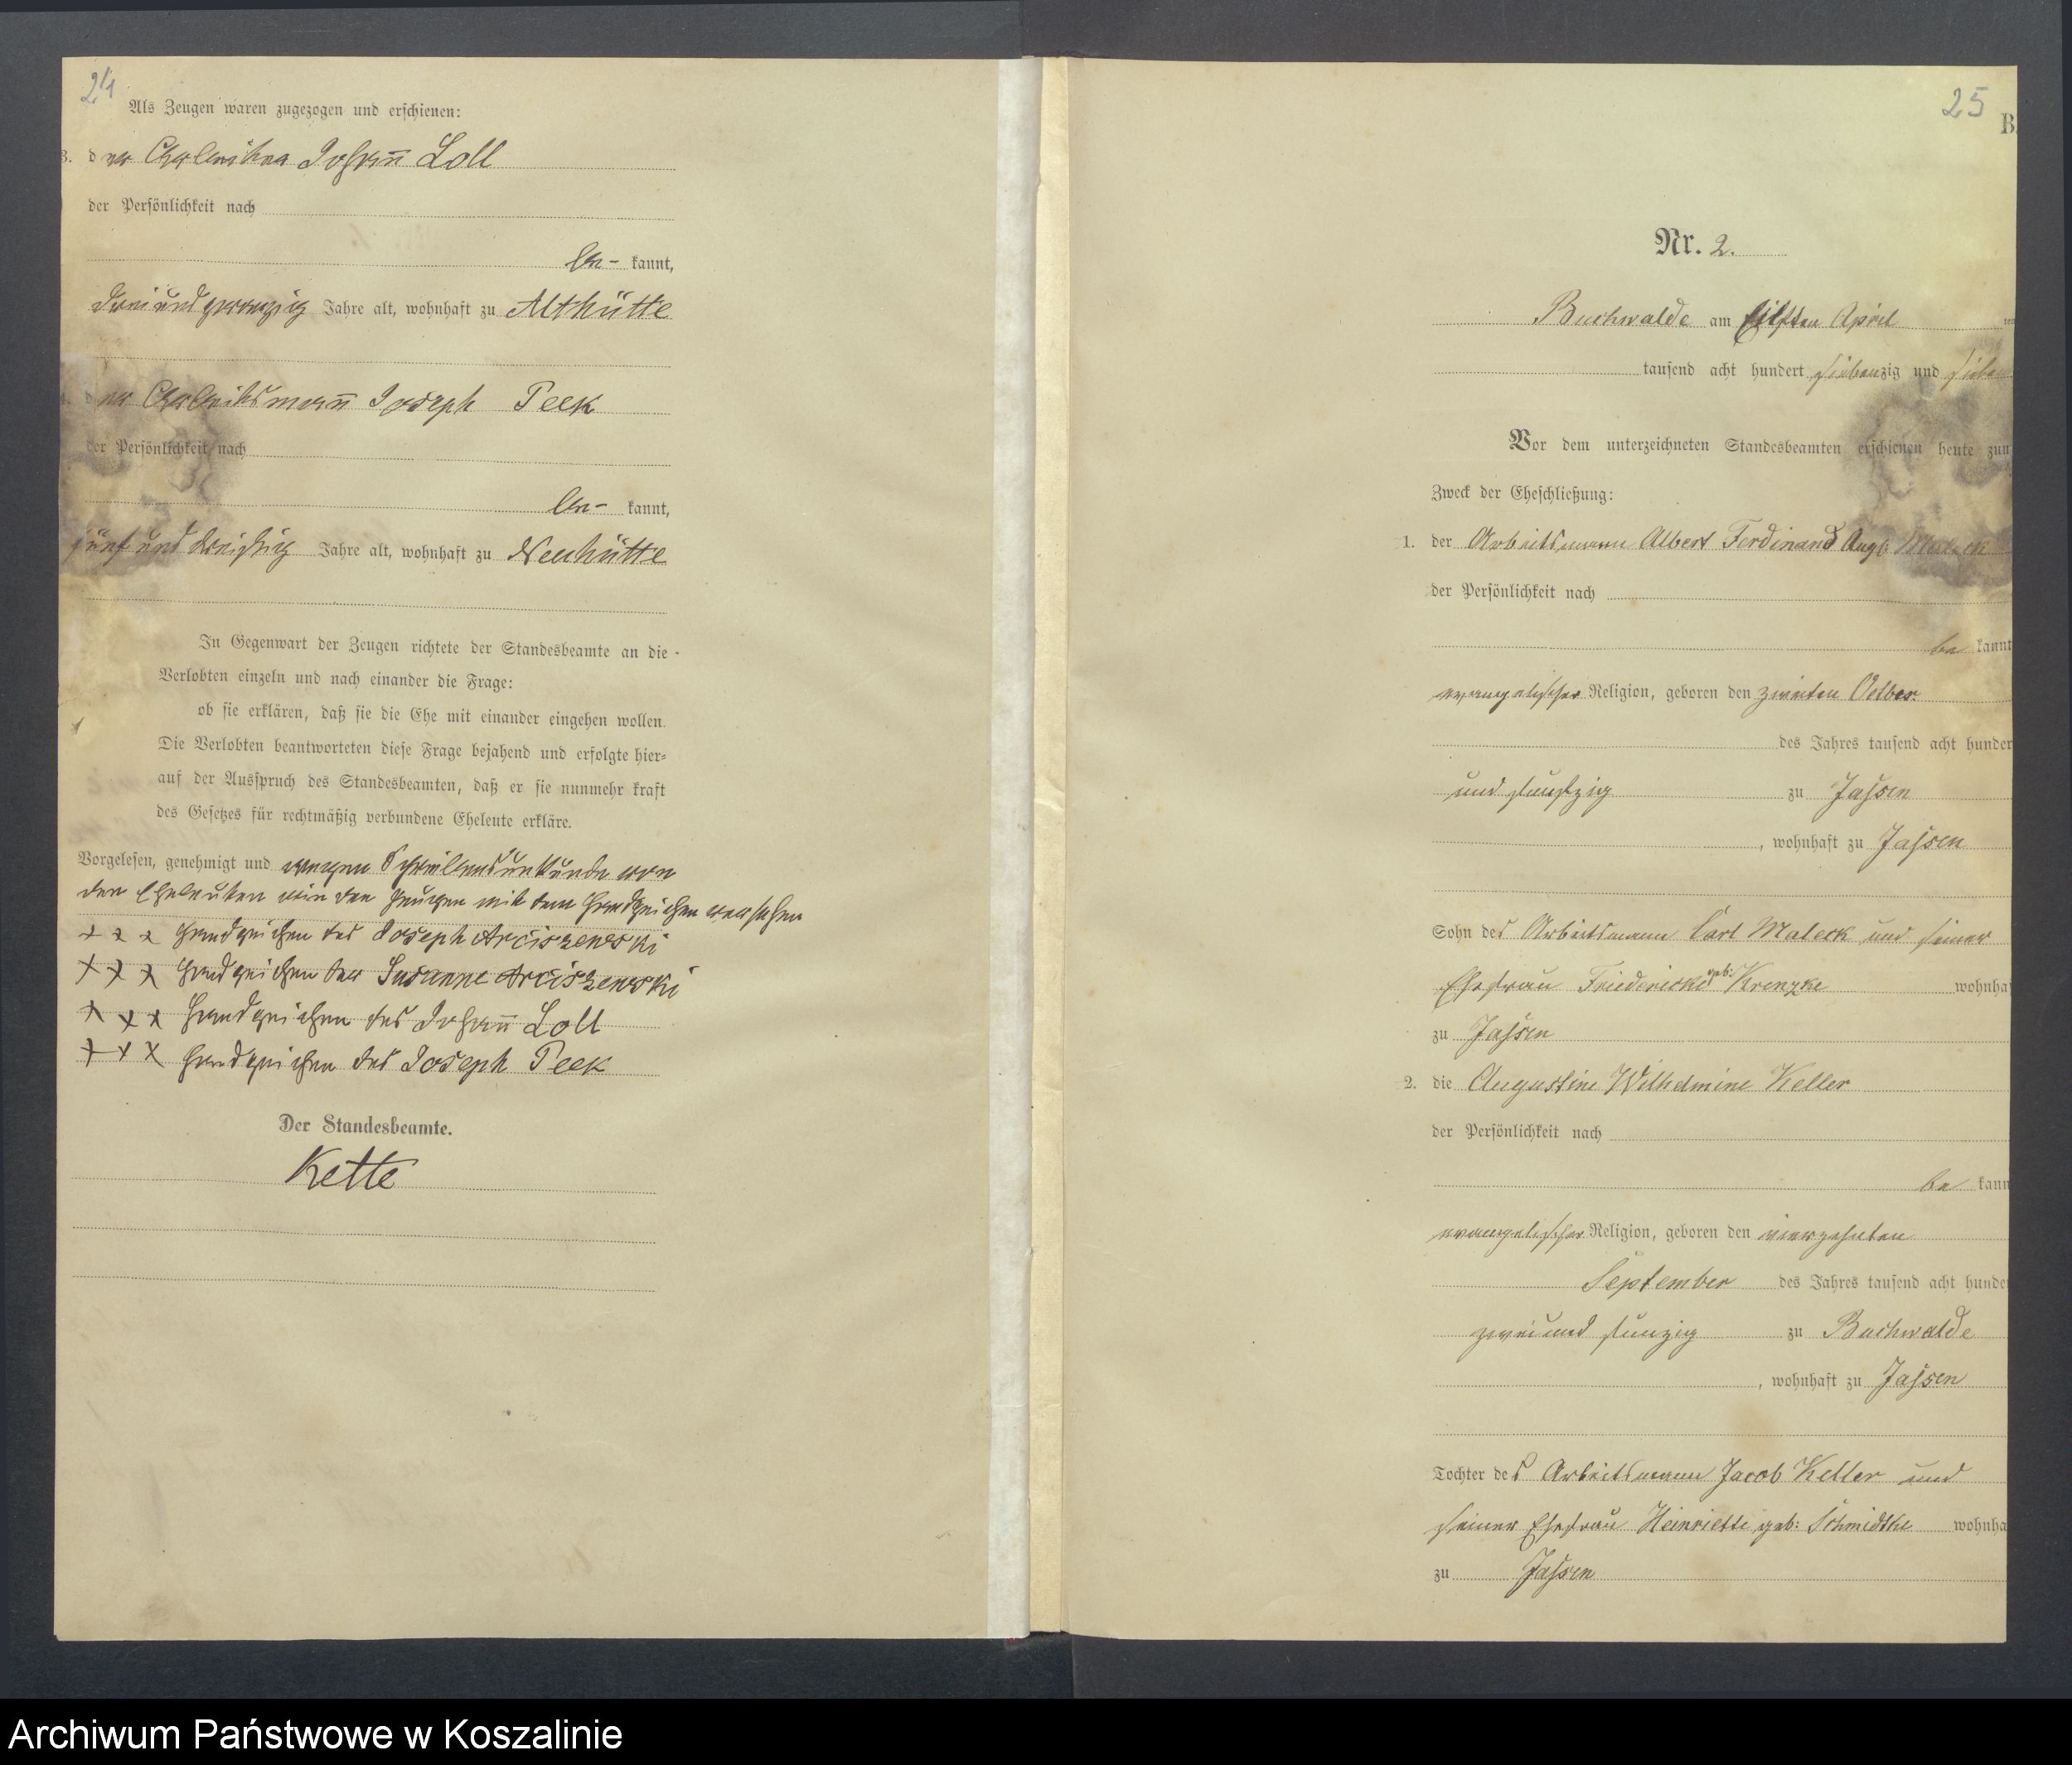 24
Als Zeugen waren zugezogen und erschienen:
3. der Arbeiter Johann Loll
der Persönlichkeit nach
be- kannt,
dreiundzwanzig Jahre alt, wohnhaft zu Althütte
4. der Arbeitsmann Joseph Peek
der Persönlichkeit nach
be- kannt,
fünf und dreißig Jahre alt, wohnhaft zu Neuhütte
In Gegenwart der Zeugen richtete der Standesbeamte an die
Verlobten einzeln und nach einander die Frage:
ob sie erklären, daß sie die Ehe mit einander eingehen wollen.
Die Verlobten beantworteten diese Frage bejahend und erfolgte hier-
auf der Ausspruch des Standesbeamten, daß er sie nunmehr kraft
des Gesetzes für rechtmäßig verbundene Eheleute erkläre.
Vorgelesen, genehmigt und wegen Schreibensunkunde von
den Eheleuten wie den Zeugen mit dem Handzeichen versehen
+ + + Handzeichen des Joseph Arciszewski
+ + + Handzeichen der Susanne Arciszewski
+ + + Handzeichen des Johann Loll
+ + + Handzeichen des Joseph Peek
Der Standesbeamte.
Kette
25
B.
Nr. 2.
Buchwalde am Eilften April
tausend acht hundert siebenzig und sieben
Vor dem unterzeichneten Standesbeamten erschienen heute zum
Zweck der Eheschließung:
1. der Arbeitsmann Albert Ferdinand Aug. Maleck
der Persönlichkeit nach
be kannt
evangelischer Religion, geboren den zweiten October
des Jahres tausend acht hunder
und funfzig zu Jassen
, wohnhaft zu Jassen
Sohn des Arbeitsmann Carl Maleck und seiner
Ehefrau Friedericke geb: Krenzke wohnhaf
zu Jassen
2. die Augustine Wilhelmine Keller
der Persönlichkeit nach
be kann
evangelischer Religion, geboren den vierzehnten
September des Jahres tausend acht hunde
zwei und funzig zu Buchwalde
, wohnhaft zu Jassen
Tochter des Arbeitsmann Jacob Keller und
seiner Ehefrau Heinriette geb: Schmidtke wohnha
zu Jassen
Archiwum Państwowe w Koszalinie